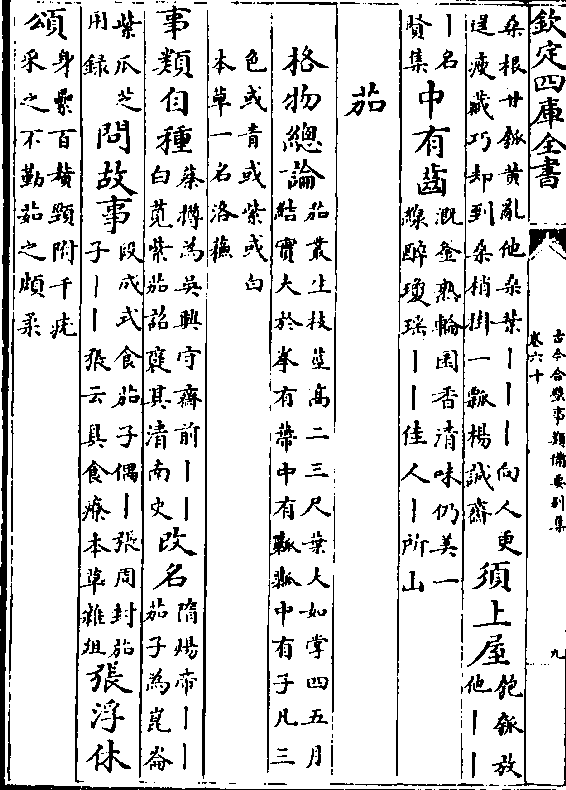 欽定四庫全書
古今合璧事類備要別集
卷六十
九
桑根甘瓠黄亂他桑葉丨丨丨向人更
逞瘦藏巧却到桑梢掛一瓢楊誠齋
須上屋
飽瓠放
他丨丨
丨名
賢集
中有齒
溉釜熟輪囷香清味仍美一
線醉瓊瑶丨丨佳人丨所山
茄
格物總論
茄叢生枝莖高二三尺葉大如掌四五月
結實大於拳有蔕中有瓤瓤中有子凡三
色或青或紫或白
本草一名洛穌
事類自種
蔡撙為吳興守齋前丨丨
白莧紫茄詔褒其清南史
改名
隋煬帝丨丨
茄子為崑崙
紫瓜芝
用録
問故事
段成式食茄子偶丨張周封茄
子丨丨張云具食療本草雜俎
張浮休
頌
身累百贅頸附千疣
采之不勤茄之頗柔